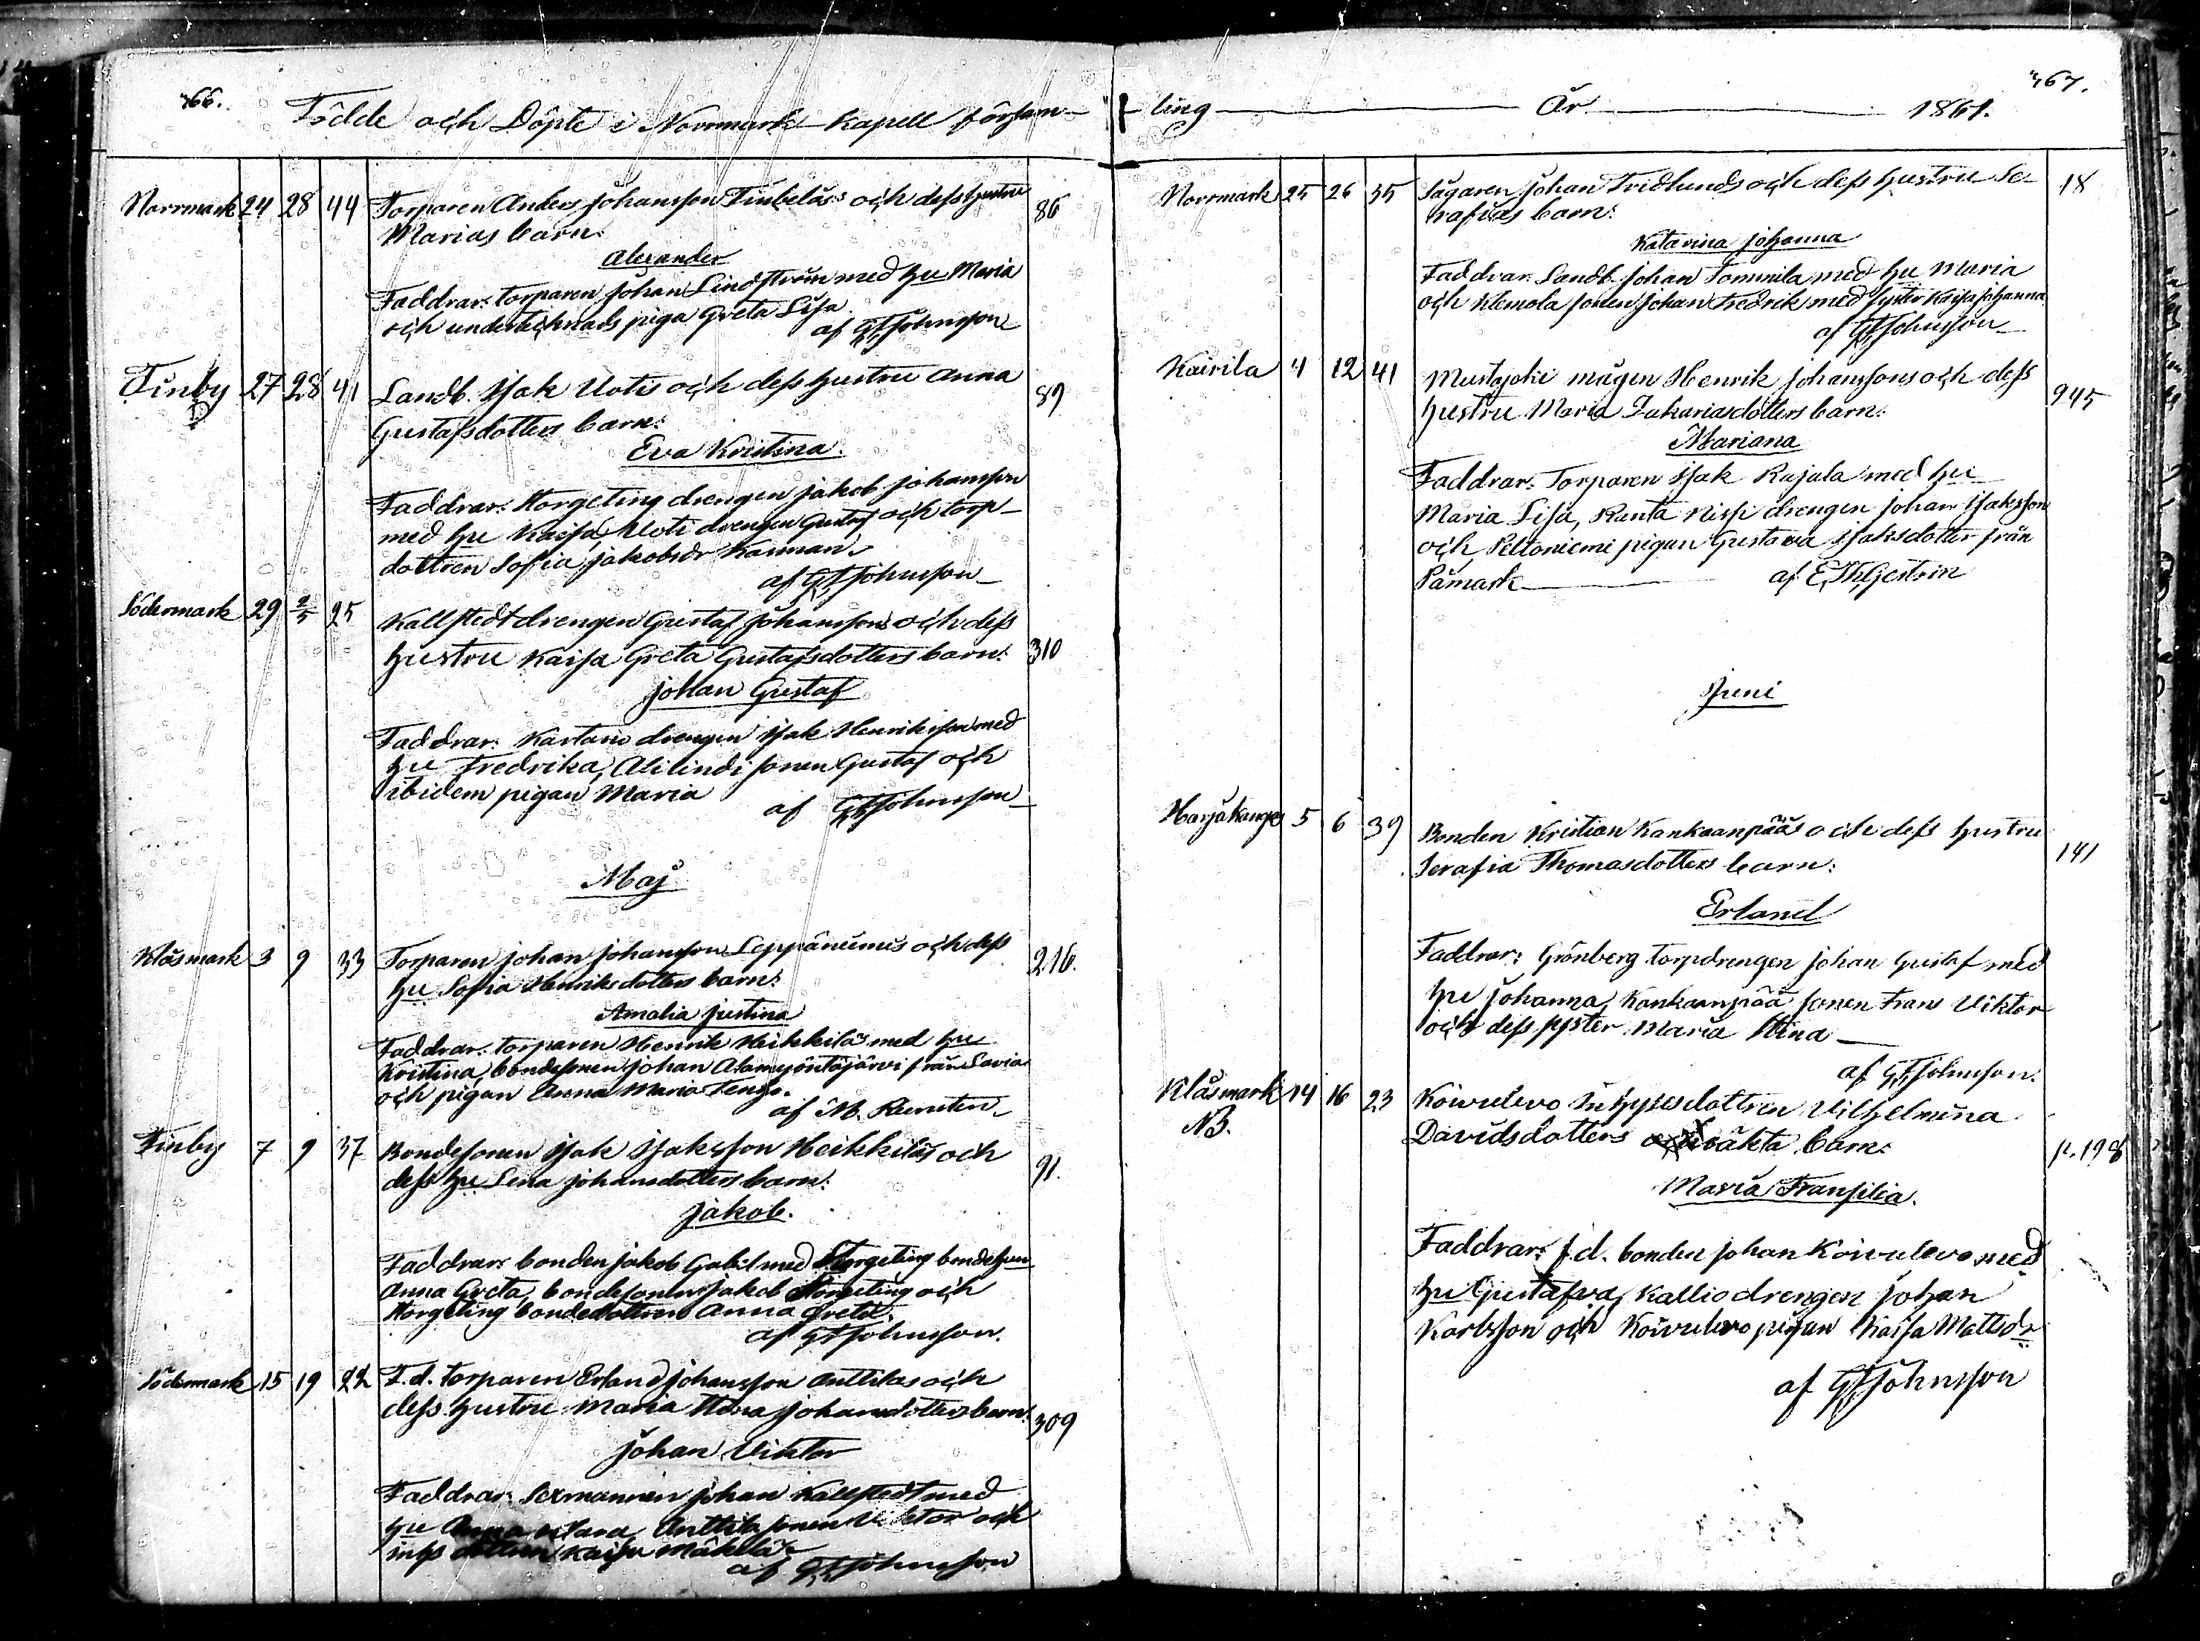 366.
Födde och Döpte i Norrmark kapell försam-
Norrmark 24 28 44 Torparen Anders Johansson Finbeläs och dess hustru 86
Marias barn:
Alexander
Faddrar: torparen Johan Lindström med hu Maria
och undertecknads piga Greta Lisa
af GFJohnsson
Finby 27 28 41 Landb. Isak Uotis och dess hustru Anna 89
Gustafsdotters barn:
Eva Kristina.
Faddrar: Storgeting drengen Jakob Johansson
med hu Kaisa, Uoti drengen Gustaf och torp-
dottren Sofia Jakobsdr
af GFJohnsson
Södermark 29 2/5 25 Kallstedt drengen Gustaf Johanssons och dess
hustru Kaisa Greta Gustafsdotters barn: 310
Johan Gustaf
Faddrar: Kartano drengen Isak Henriksson med
hu Fredrika, Alilindi sonen Gustaf och
ibidem pigan Maria
af GFJohnsson
Maj
Klåsmark 3 9 33 Torparen Johan Johansson Leppäniemis och dess 216.
hu Sofia Henriksdotters barn:
Amalia Justina
Faddrar: torparen Henrik Heikkilä med hu
Kristina, bondesonen Johan Alamyöntäjärvi från Lavia
och pigan Anna Maria
af M.
Finby 7 9 37 Bondesonen Isak Isaksson Heikkiläs och
dess hu Lena Johansdotters barn: 91.
Jakob.
Faddrar: bonden Jakob Gabel med Storgeting bondehun
Anna Greta, bondesonen Jakob Storgeting och
Storgeting bondedottren Anna Greta.
af GFJohnsson.
Södermark 15 19 22 F.d. torparen Erland Johansson Anttilas och
dess hustru Maria Stina Johansdotters barn: 309
Johan Viktor
Faddrar: Sexmannen Johan Kallstedt med
hu Anna Clara, Anttila sonen Viktor och
inhs dottren Kaisa Mäkelä
af GFJohnsson
367.
ling År 1861.
Norrmark 25 26 35 Sågaren Johan Fridlunds och dess hustru Se- 18
rafias barn:
Katarina Johanna
Faddrar: Landb. Johan Tommila med hu Maria
och Klemola sonen Johan Fredrik med syster Kaisa Johanna
af GFJohnsson
Kairila 4 12 41 Mustajoki mågen Henrik Johanssons och dess
hustru Maria Zakariasdotters barn: 945
Mariana
Faddrar: Torparen Isak Rajala med hu
Maria Lisa, Ranta Nissi drengen Johan Isaksson
och Peltoniemi pigan Gustava Isaksdotter från
Påmark af E,Th,Gestrin
Juni
Harjakangas 5 6 39 Bonden Kristian Kankaanpääs och dess hustru
Serafia Thomasdotters barn: 141
Erland
Faddrar: Grönberg torpdrengen Johan Gustaf med
hu Johanna, Kankaanpää sonen Frans Viktor
och dess syster Maria Stina
af GFJohnsson.
Klåsmark 14 16 23 Koivulevo inhysesdottren Vilhelmina
NB. Davidsdotters oäkta barn: p. 198
Maria Fransilia.
Faddrar: f.d. bonden Johan Koivulevo med
hu Gustafva, Kallio drengen Johan
Karlsson och Koivulevo pigan Kaisa Mattsdr
af GFJohnsson